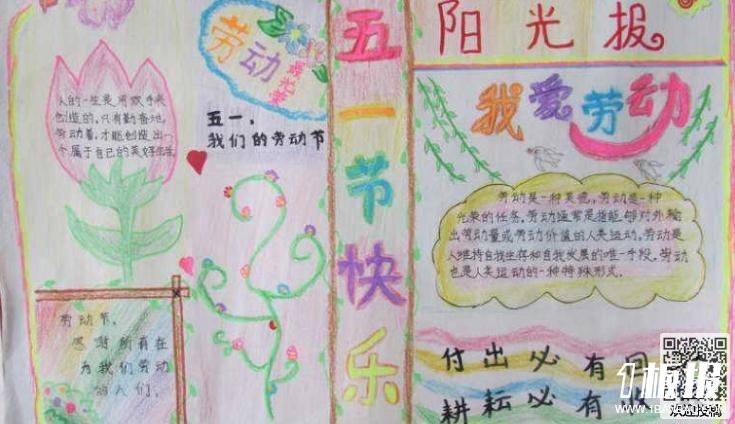 人的一生是用双手来
创造的,只有勤奋地
劳动着,才能创造出一
个属于自己的美好生活
劳动节,
感谢所有在
为我们劳动
的人们。
劳动
最光荣
五一,
我们的劳动节
五一节快乐
阳光报
我爱劳动
劳动是一种美德,劳动是一种
光荣的任务。劳动通常是指能够对外输
出劳动量或劳动价值的人类运动,劳动是
人维持自我生存和自我发展的唯一手段。劳动
也是人类运动的一种特殊形式。
付出必有回
耕耘必有收
板报
欢迎投稿